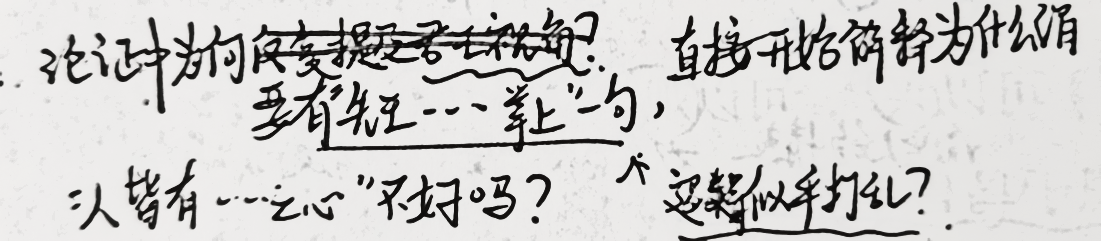 论证中为何反复提及君王视角? 直接开始解释为什么谓
要有"先王……掌上"一句,
"人皆有……之心"不好吗? 逻辑似乎打乱?